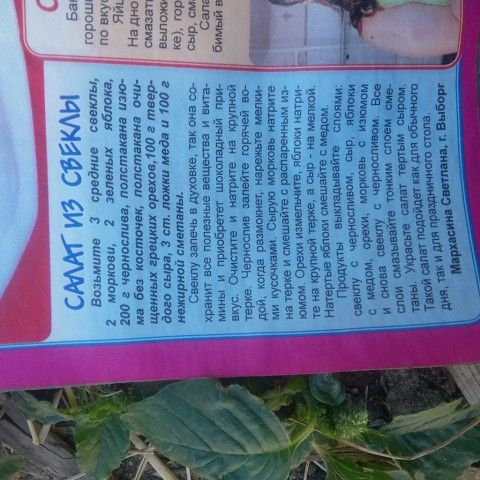 САЛАТ ИЗ СВЕКЛЫ
Возьмите 3 средние свеклы,
2 моркови, 2 зеленых яблока,
200 г чернослива, полстакана изю-
ма без косточек, полстакана очи-
щенных грецких орехов, 100 г твер-
дого сыра, 3 ст. ложки меда и 100 г
нежирной сметаны.
Свеклу запечь в духовке, так она со-
хранит все полезные вещества и вита-
мины и приобретет шоколадный при-
вкус. Очистите и натрите на крупной
терке. Чернослив залейте горячей во-
дой, когда размокнет, нарежьте мелки-
ми кусочками. Сырую морковь натрите
на терке и смешайте с распаренным из-
юмом. Орехи измельчите, яблоки натри-
те на крупной терке, а сыр - на мелкой.
Натертые яблоки смешайте с медом.
Продукты выкладывайте слоями:
свеклу с черносливом, сыр, яблоки
с медом, орехи, морковь с изюмом
и снова свеклу с черносливом. Все
слои смазывайте тонким слоем сме-
таны. Украсьте салат тертым сыром.
Такой салат подойдет как для обычного
дня, так и для праздничного стола.
Мархасина Светлана, г. Выборг
горош
по вкус
Яйц
На дно
смазат
выложи
ке), гор
сыр, см
Сала
бимый в